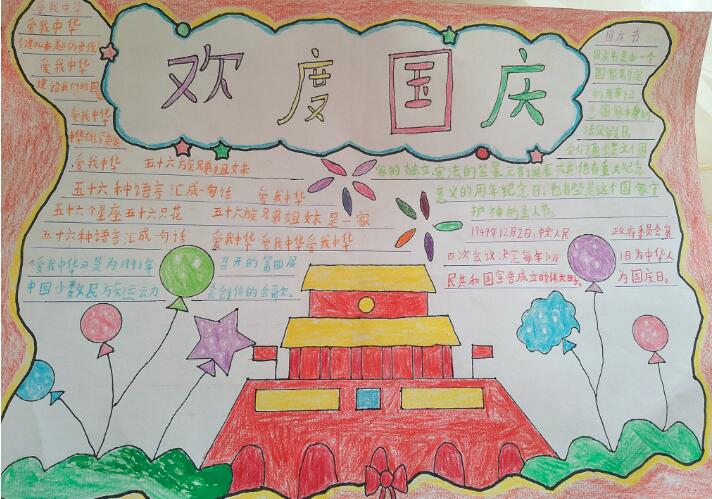 欢度国庆
爱我中华
爱我中华
爱我中华
建设我们的国
爱我中华
爱我中华 五十六族兄弟姐妹
五十六种语言汇成一句话 爱我中华
五十六个星座五十六只花 五十六族兄弟姐妹是一家
五十六种语言汇成一句话 爱我中华 爱我中华爱我中华
《爱我中华》是为1991年 召开的第四届
中国少数民族运云力 会创作的会歌。
国庆节
国庆节是由一个
国家制定
法定假日。
这个国
家的独立、宪法的签署、元首诞辰或其他有重大纪念
意义的周年纪念日;也有些是这个国家守
护神的圣人节。
1949年12月2日,中央人民 政府委员会第
四次会议决定每年10月 1日为中华人
民共和国宣告成立的伟大日子 为国庆日。